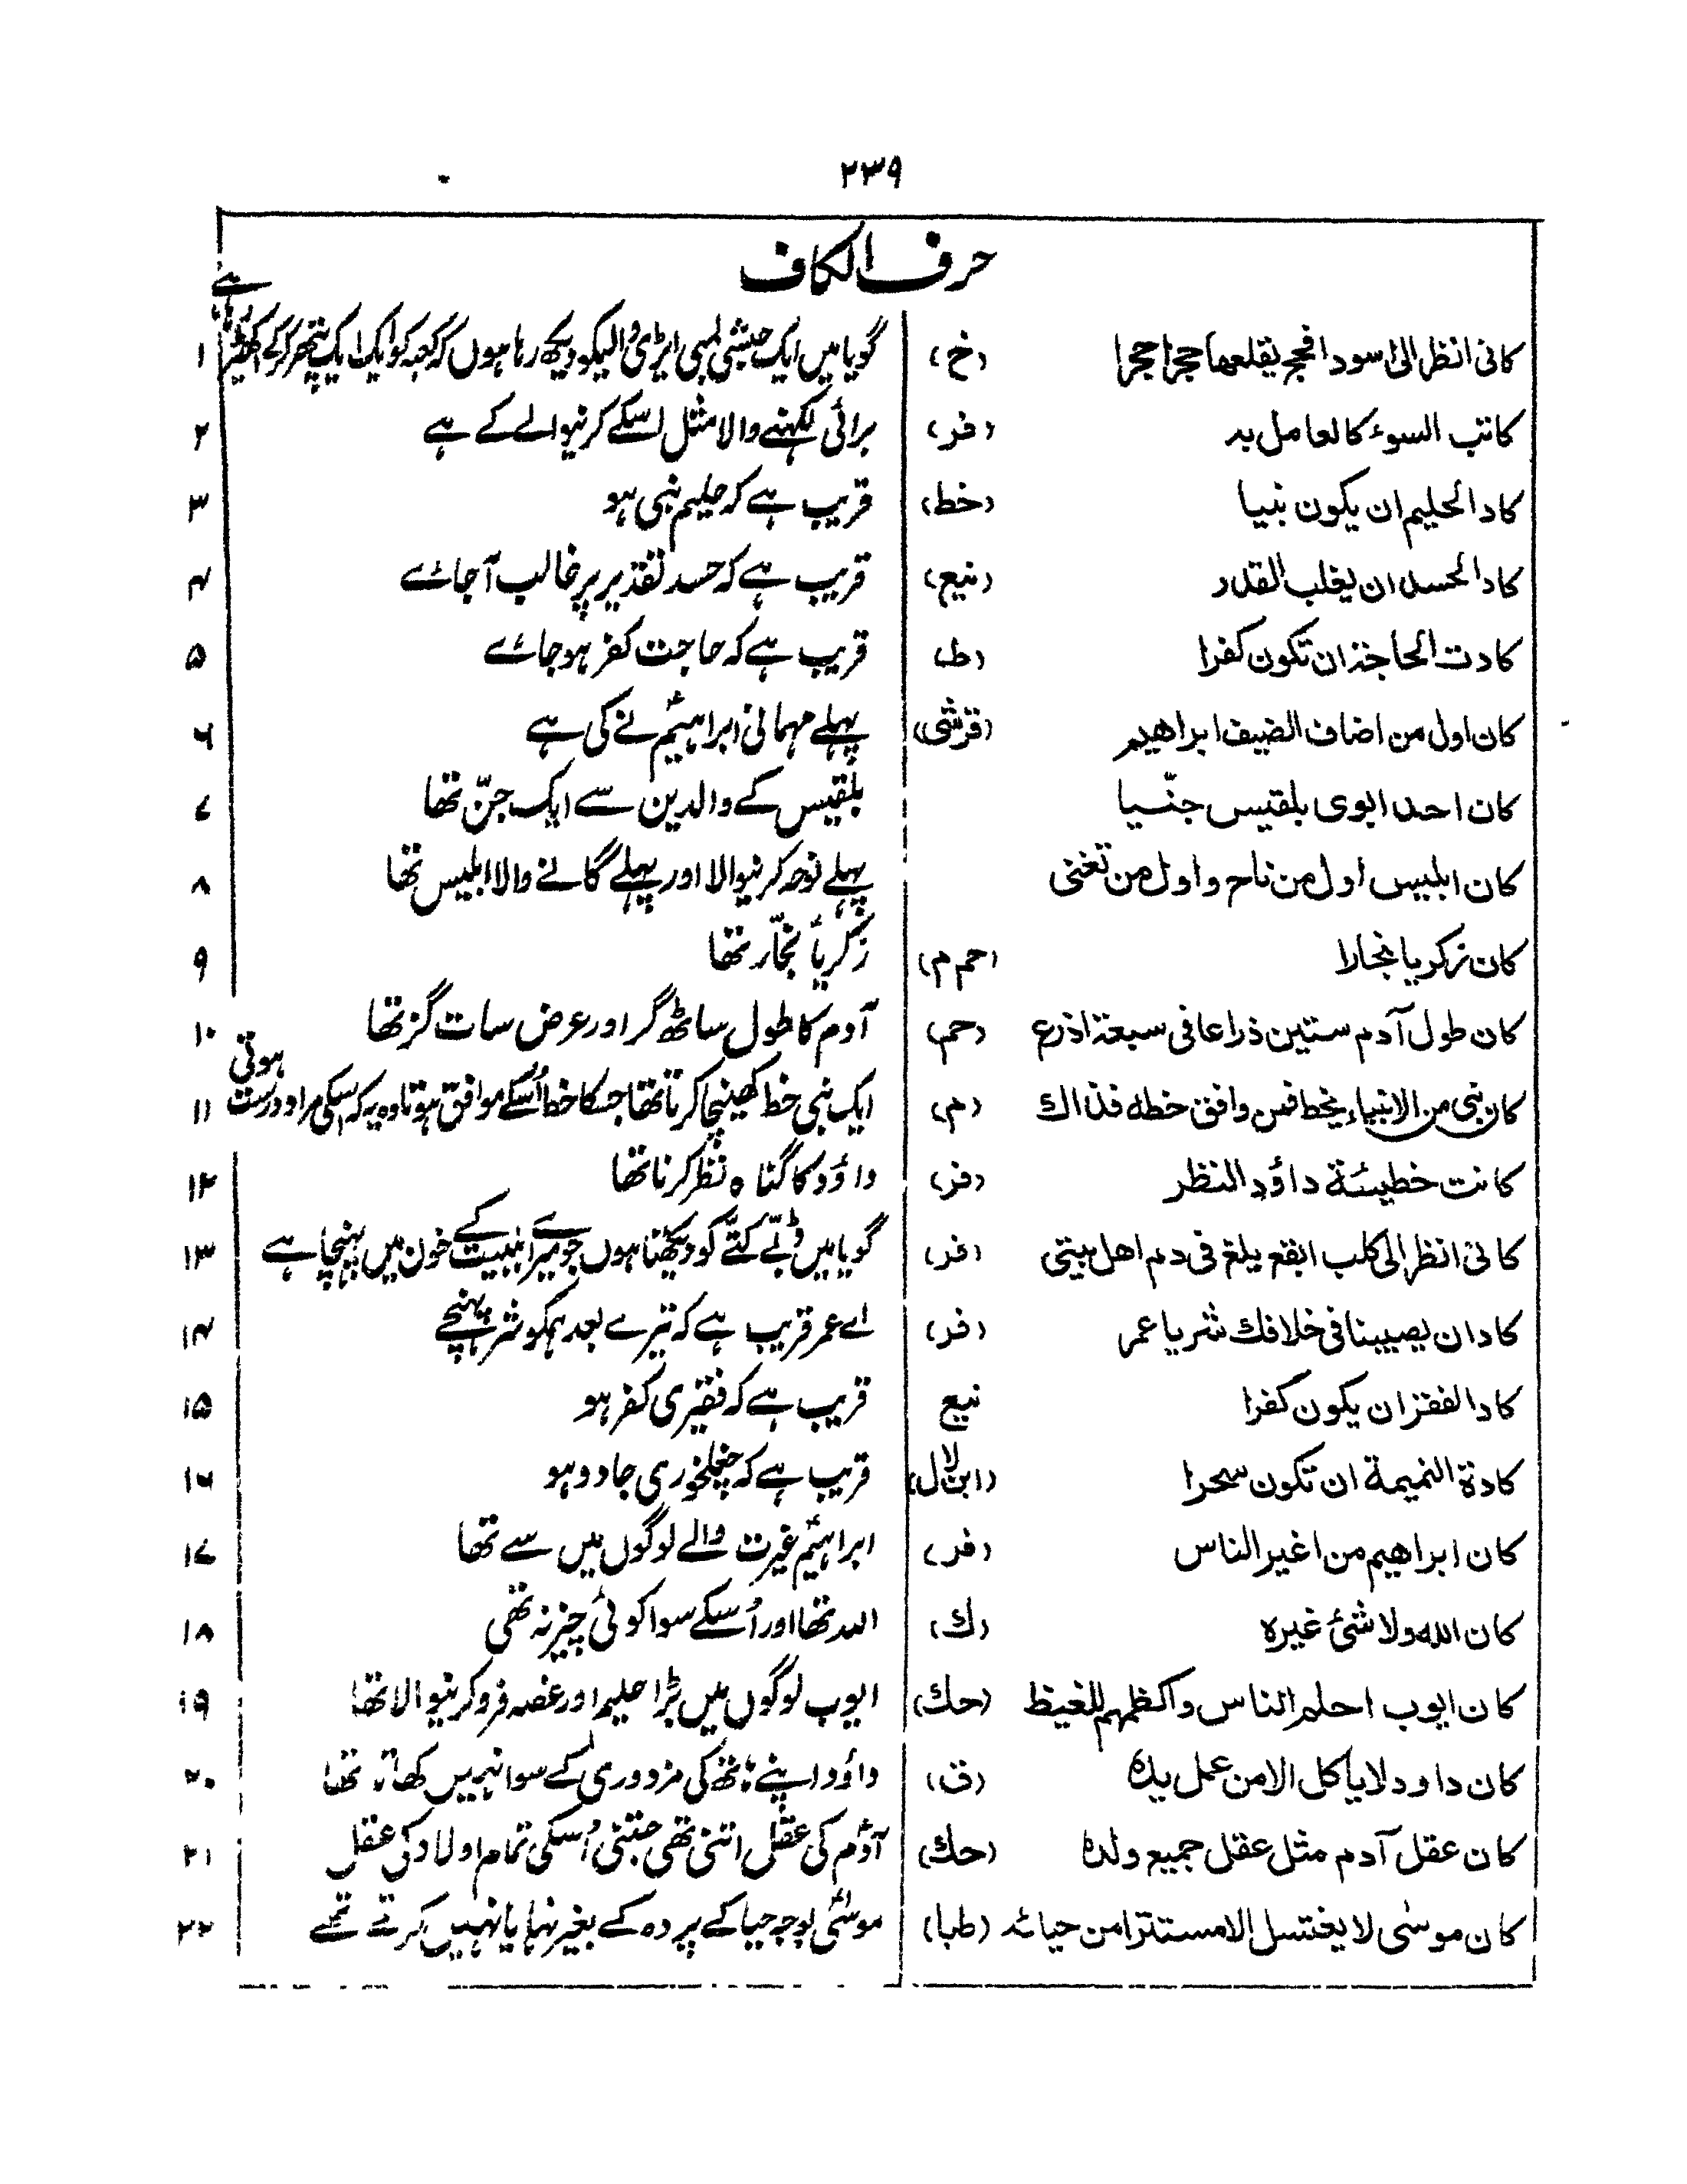 ۲۳۹
حرف الكاف
كانى انظر الى اسود افحج يقلعها حجرا حجرا (خ) گویا میں ایک حبشی لمبی ایڑی والیکو دیکھ رہا ہوں کہ کعبہ کو ایک ایک پتھر کرکے اکھیڑ رہا ہے ۱
كاتب السوء كالعامل به (فر) برائی لکہنے والا مثل اسکے کرنیوالے کے ہے ۲
كاد الحليم ان يكون نبيا (خط) قریب ہے کہ حلیم نبی ہو ۳
كاد الحسد ان يغلب القدر (نیع) قریب ہے کہ حسد تقدیر پر غالب آجائے ۴
كادت الحاجة ان تكون كفرا (طب) قریب ہے کہ حاجت کفر ہوجائے ۵
كان اول من اضاف الضيف ابراهيم (قرشی) پہلے مہمانی ابراہیمؑ نے کی ہے ۶
كان احد ابوى بلقيس جنّيا بلقیس کے والدین سے ایک جنّ تھا ۷
كان ابليس اول من ناح واول من تغنى پہلے نوحہ کرنیوالا اور پہلے گانے والا ابلیس تھا ۸
كان زكريا نجارا (حم م) زکریاؑ نجّار تھا ۹
كان طول آدم ستين ذراعا فى سبعة اذرع (حم) آدم کا طول ساٹھ گز اور عرض سات گز تھا ۱۰
كان نبى من الانبياء يخط فمن وافق خطه فذاك (م) ایک نبی خط کھینچا کرتا تھا جسکا خط اُسکے موافق ہوتا وہ یہ کہ اسکی مراد درست ہوتی ۱۱
كانت خطيئة داؤد النظر (فر) داؤد کا گناہ نظر کرنا تھا ۱۲
كانى انظر الى كلب ابقع يلغ فى دم اهل بيتى (فر) گویا میں ڈبّے کتّے کو دیکھتا ہوں جو میرے اہلبیت کے خون میں پہنچا ہے ۱۳
كاد ان يصيبنا فى خلافك شر يا عمر (فر) اے عمر قریب ہے کہ تیرے بعد ہمکو شر پہنچے ۱۴
كاد الفقر ان يكون كفرا نیع قریب ہے کہ فقیری کفر ہو ۱۵
كادة النميمة ان تكون سحرا (ابن لال) قریب ہے کہ چغلخوری جادو ہو ۱۶
كان ابراهيم من اغير الناس (فر) ابراہیمؑ غیرت والے لوگوں میں سے تھا ۱۷
كان الله ولا شئ غيره (ك) اللہ تھا اور اُسکے سوا کوئی چیز نہ تھی ۱۸
كان ايوب احلم الناس واكظمهم للغيظ (حك) ایوب لوگوں میں بڑا حلیم اور غصہ فرو کرنیوالا تھا ۱۹
كان داود لا يأكل الا من عمل يده (ق) داؤد اپنے ہاتھ کی مزدوری کے سوا نہیں کھاتا تھا ۲۰
كان عقل آدم مثل عقل جميع ولده (حك) آدمؑ کی عقل اتنی تھی جتنی اُسکی تمام اولاد کی عقل ۲۱
كان موسى لا يغتسل الا مستترا من حيائه (طبا) موسیٰؑ بوجہ حیا کے پردہ کے بغیر نہایا نہیں کرتے تھے ۲۲